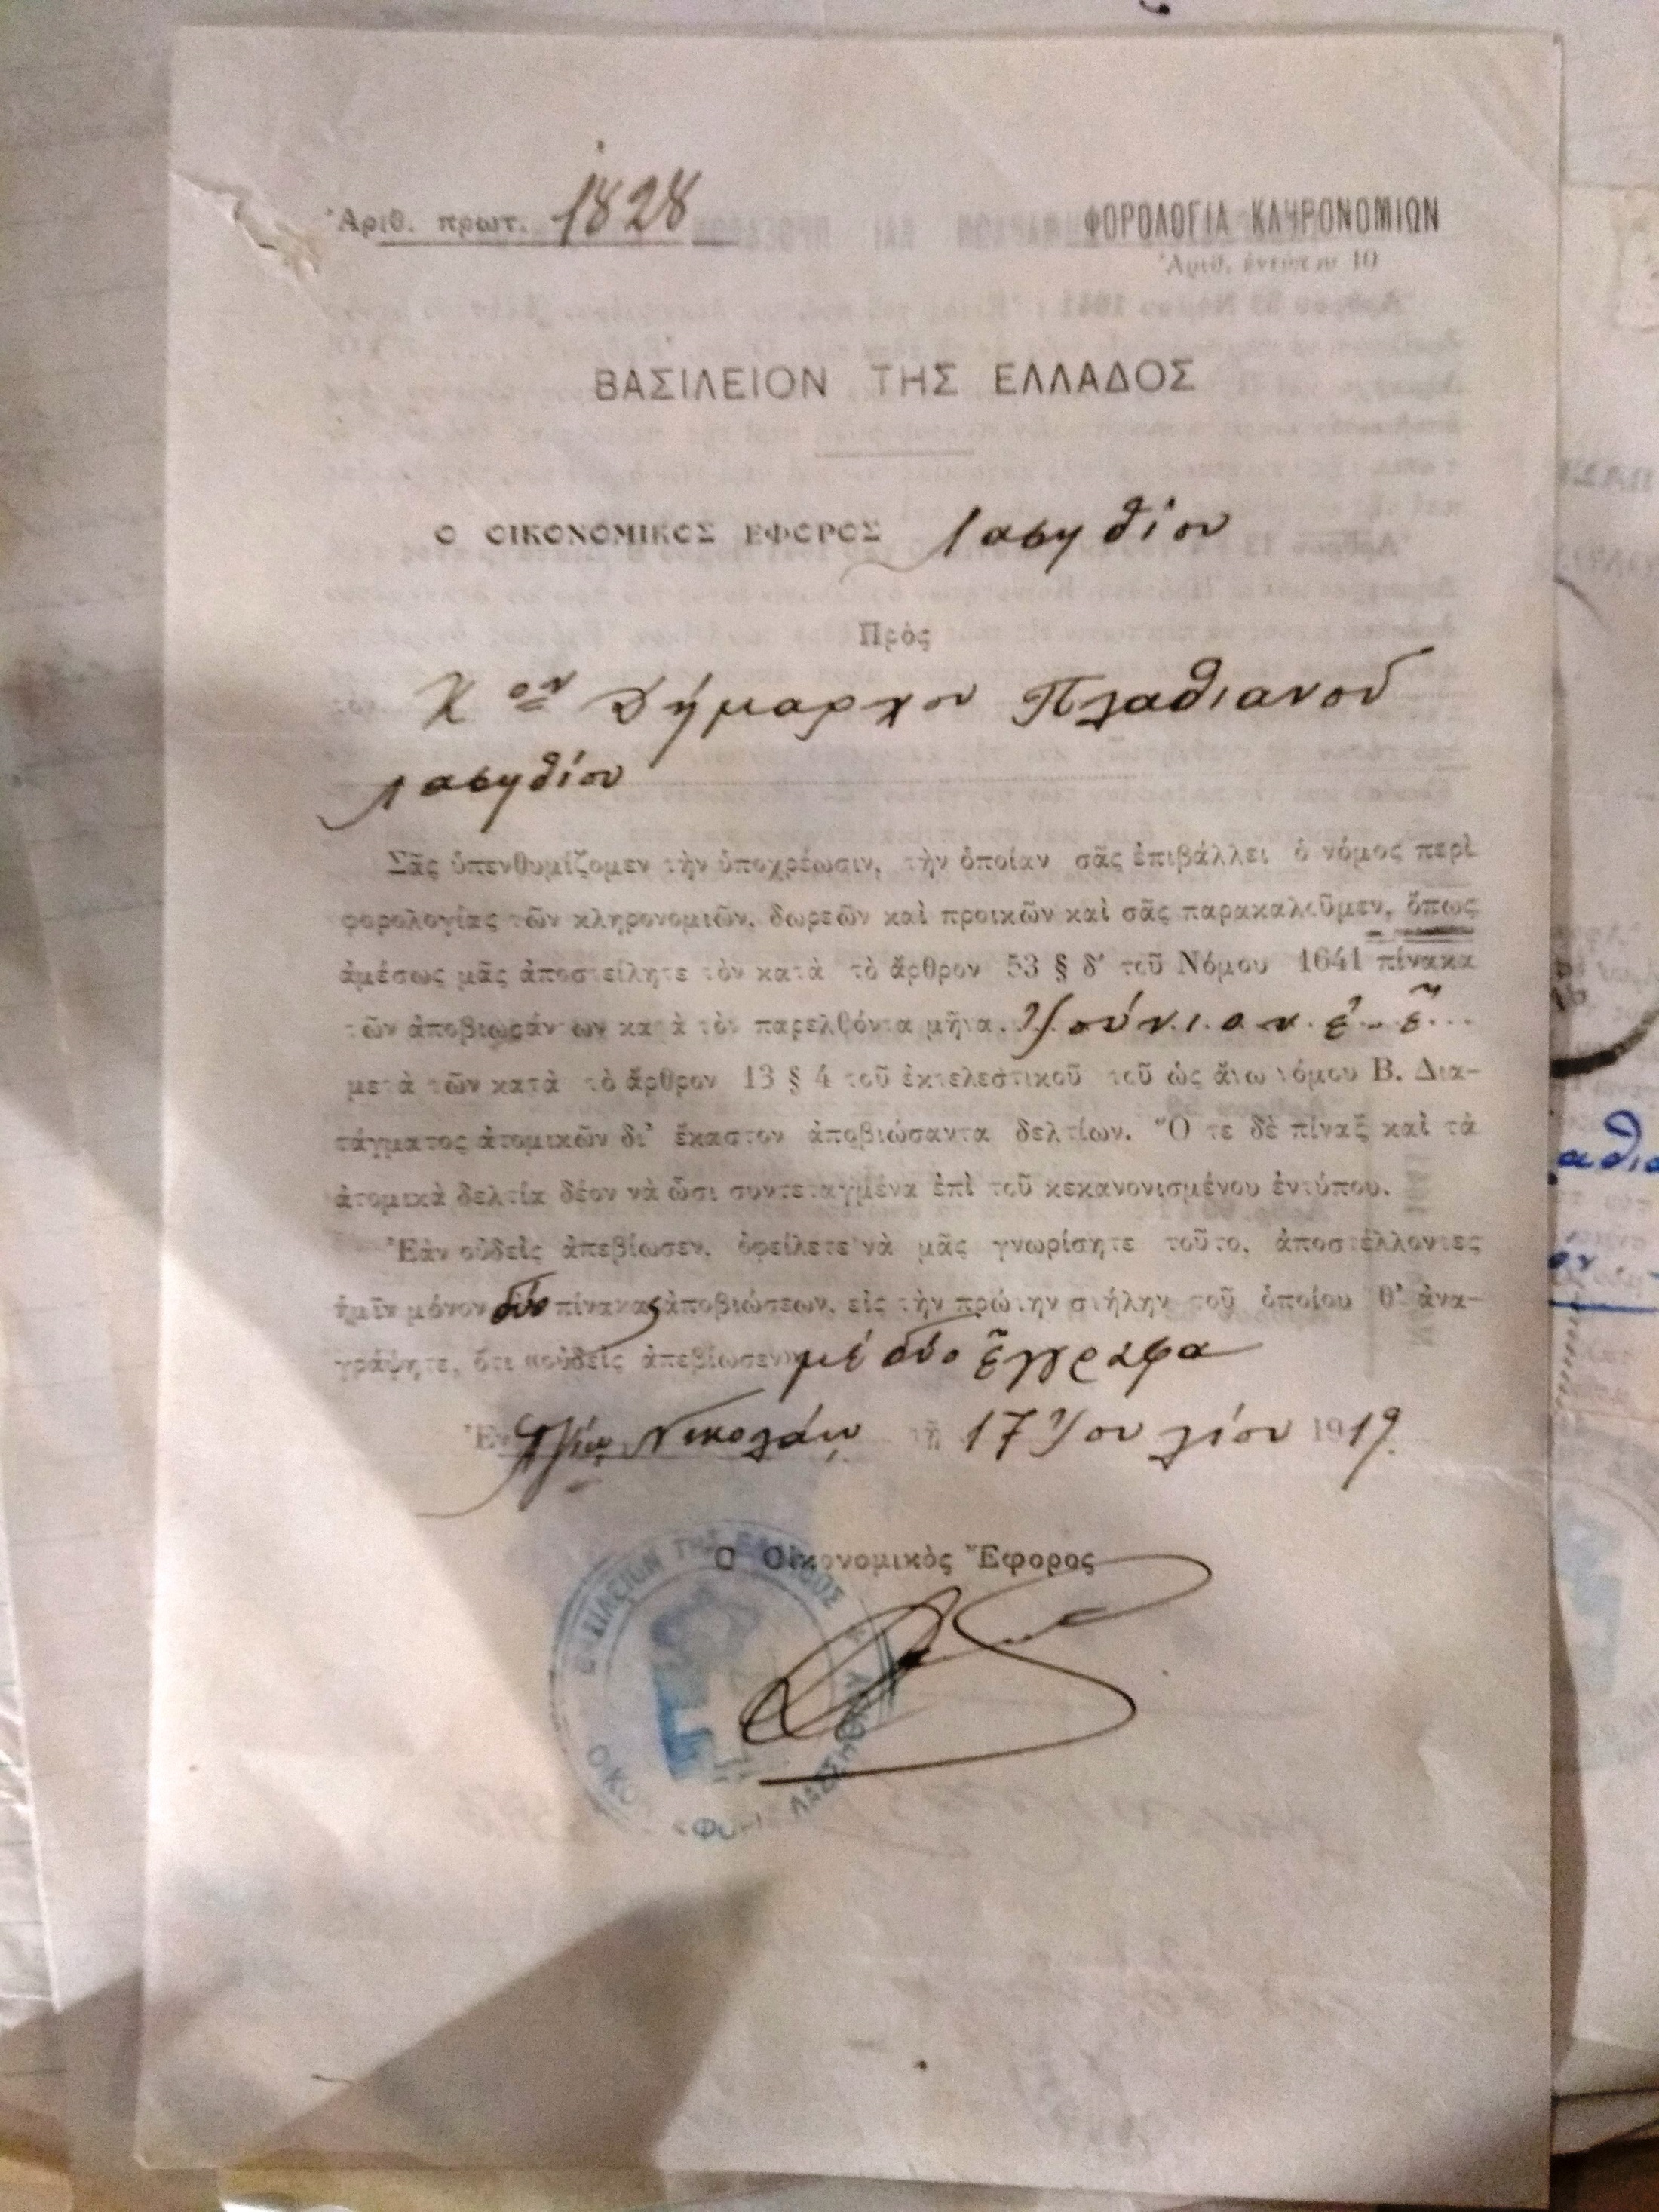 Ἀριθ. πρωτ. 1828
ΦΟΡΟΛΟΓΙΑ ΚΛΗΡΟΝΟΜΙΩΝ
Ἀριθ. ἐντύπου 10
ΒΑΣΙΛΕΙΟΝ ΤΗΣ ΕΛΛΑΔΟΣ
Ο ΟΙΚΟΝΟΜΙΚΟΣ ΕΦΟΡΟΣ Λασηθίου
Πρὸς
Κον Δήμαρχον Πλαθιανοῦ
Λασηθίου
Σᾶς ὑπενθυμίζομεν τὴν ὑποχρέωσιν, τὴν ὁποίαν σᾶς ἐπιβάλλει ὁ νόμος περὶ
φορολογίας τῶν κληρονομιῶν, δωρεῶν καὶ προικῶν καὶ σᾶς παρακαλοῦμεν, ὅπως
ἀμέσως μᾶς ἀποστείλητε τὸν κατὰ τὸ ἄρθρον 53 § δ' τοῦ Νόμου 1641 πίνακα
τῶν ἀποβιωσάντων κατὰ τὸν παρελθόντα μῆνα Ἰούνιον ἐ. ἔ.
μετὰ τῶν κατὰ τὸ ἄρθρον 13 § 4 τοῦ ἐκτελεστικοῦ τοῦ ὡς ἄνω νόμου Β. Δια-
τάγματος ἀτομικῶν δι' ἕκαστον ἀποβιώσαντα δελτίων. Ὅ τε δὲ πίναξ καὶ τὰ
ἀτομικὰ δελτία δέον νὰ ὦσι συντεταγμένα ἐπὶ τοῦ κεκανονισμένου ἐντύπου.
Ἐὰν οὐδεὶς ἀπεβίωσεν, ὀφείλετε νὰ μᾶς γνωρίσητε τοῦτο, ἀποστέλλοντες
ἡμῖν μόνον δύο πίνακας ἀποβιώσεων, εἰς τὴν πρώτην στήλην τοῦ ὁποίου θ' ἀνα-
γράψητε, ὅτι «οὐδεὶς ἀπεβίωσεν» μὲ δύο ἔγγραφα
Ἐν Ἁγίῳ Νικολάῳ τῇ 17 Ἰουλίου 1919.
Ο Οἰκονομικὸς Ἔφορος
ΒΑΣΙΛΕΙΟΝ ΤΗΣ ΕΛΛΑΔΟΣ